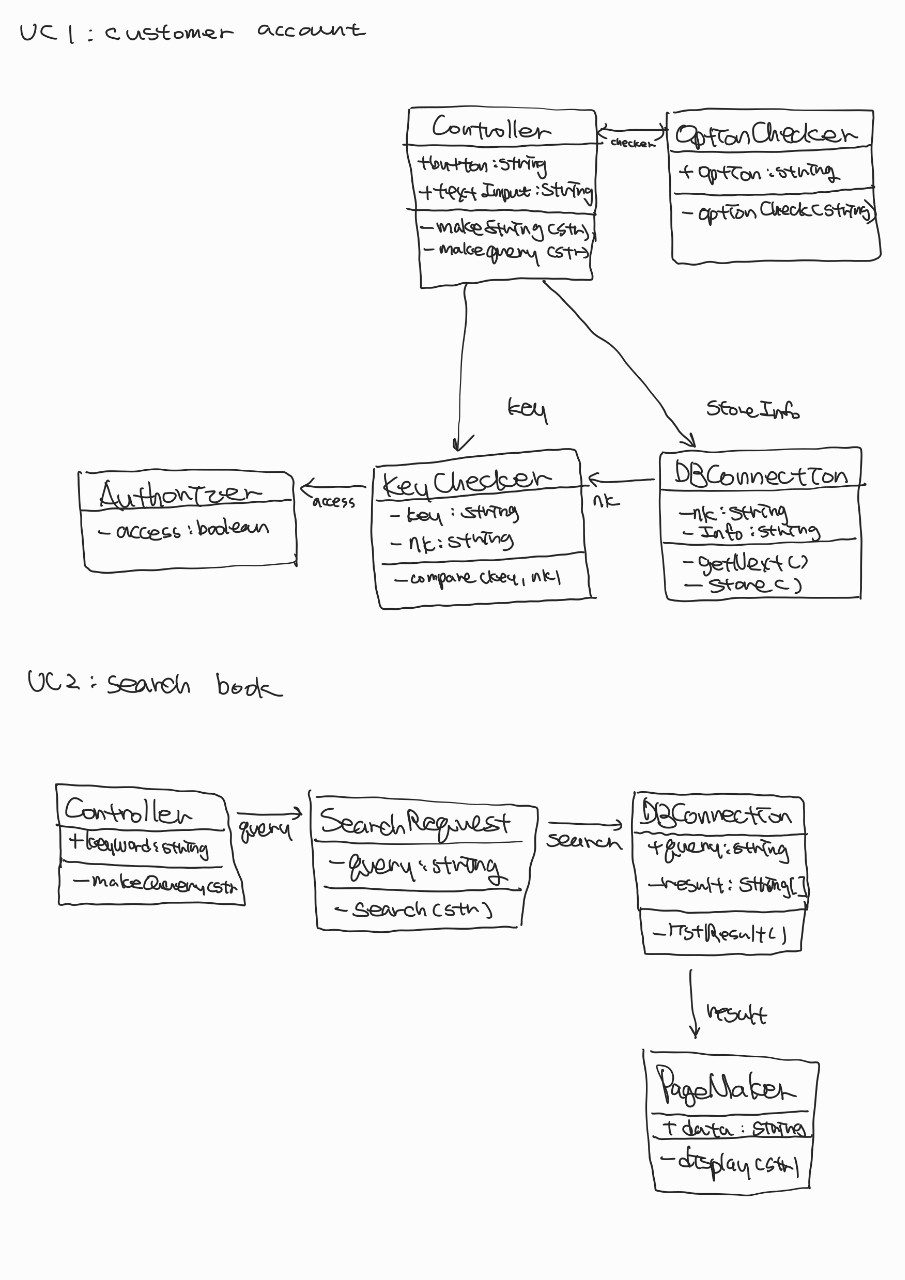 UC1: customer account
Controller
+button: string
+text Input: String
-makeString(str)
-makequery (str)
checker
OptionChecker
+ option: string
- option Check(string)
key
StoreInfo
Authorizer
- access: boolean
access
KeyChecker
- key: string
- nk: string
-compare(key, nk)
nk
DBConnection
-nk: string
- Info: string
-getNext()
- Store()
UC2: search book
Controller
+keyword: string
-makeQuery(str
query
SearchRequest
-query: string
-search(str)
search
DBConnection
+query: string
-result: String[]
-listResult()
result
PageMaker
+ data: string
-display(str)